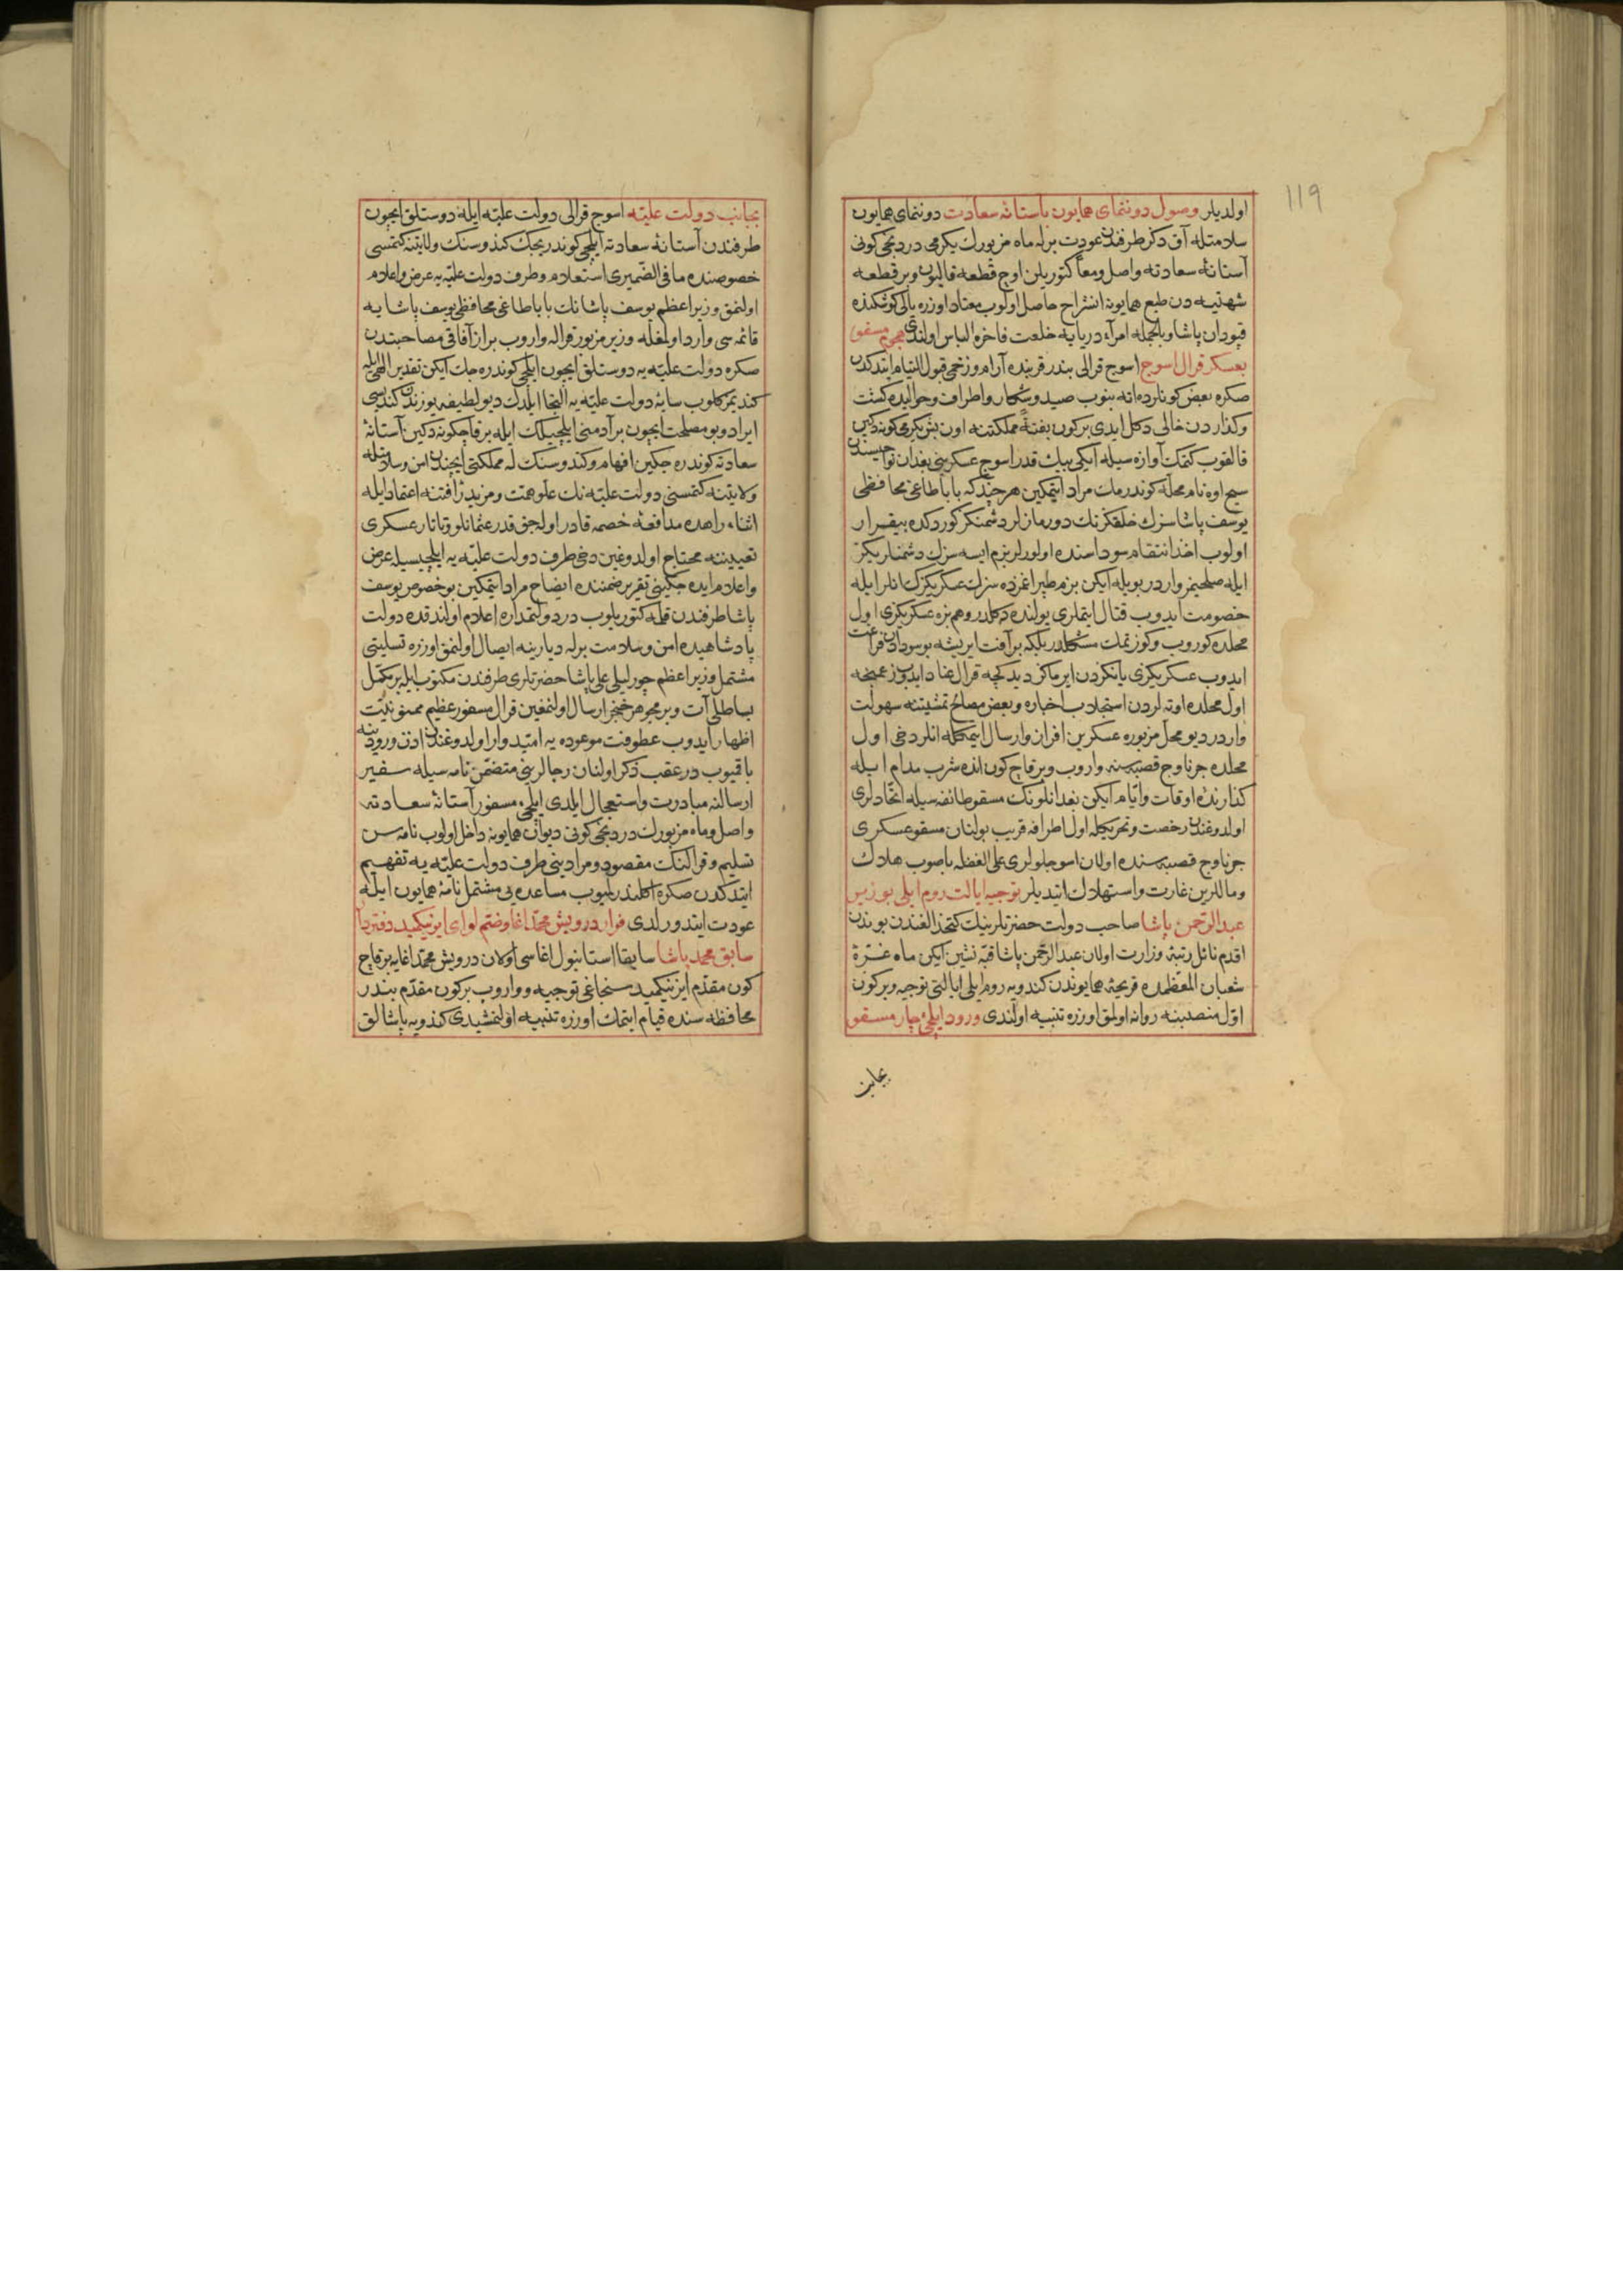 119
اولديلر وصول دوننماى همايون بآستانهٔ سعادت دوننماى همايون
سلامتله آق دكز طرفندن عودت برله ماه مزبورك يكرمى دردنجى كونى
آستانهٔ سعادته واصل ومعاً كتوريلن اوچ قطعه قاليون وبر قطعه
شهتيه دن طبع همايونه انشراح حاصل اولوب معتاد اوزره يالى كوشكنده
قپودان پاشا وبالجمله امرآء دريايه خلعت فاخره الباس اولندى هجوم مسقو
بعسكر قرال اسوج اسوج قرالى بندر قربنده آرام وزخمى قبول التيام ايتدكدن
صكره بعض كونلرده اته بنوب صيد وشكار واطراف وحواليده كشت
وكذاردن خالى دكل ايدى بركون بغتةً مملكتنه اون بش يكرمى كونه دكين
قالقوب كتمك آوازه سيله ايكى بيك قدر اسوج عسكرينى بغدان نواحيسندن
اوه نام محله كوندرمك مراد ايتمكين هر چند كه باباطاغى محافظى
يوسف پاشا سزك خلقكزنك دورمازلر دشمنكز كوردكده بيقرار
اولوب اخذ انتقام سوداسنده اولورلر بزم ايسه سزك دشمنلريكز
ايله صلحيمز واردر بويله ايكن بزم طپراغمزده سزك عسكريكزك انلر ايله
خصومت ايدوب قتال ايتملرى يولنده دكلدر وهم بزه عسكريكزى اول
محلده كوروب وكوزتمك مشكلدر بلكه بر آفت ايريشه بو سودادن فراغت
ايدوب عسكريكزى يانكزدن ايرماكز ديدكجه قرال عناد ايدوب زعمنجه
اول محلده اوته لردن استجلاب اخباره وبعض مصالح تمشيتنه سهولت
واردر ديو محل مزبوره عسكرين افراز وارسال ايتمكله انلر دخى اول
محلده جرناوج قصبه سنه واروب وبر قاچ كون انده شرب مدام ايله
كذارنده اوقات وايام ايكن بغدانلونك مسقو طائفه سيله اتحادلرى
اولدوغندن رخصت وتحريكله اول اطرافه قريب بولنان مسقو عسكرى
جرناوج قصبه سنده اولان اسوجلولرى على الغفله باصوب هلاك
ومالارين غارت واستهلاك ايتديلر توجيه ايالت روم ايلى بوزير
عبدالرحمن پاشا صاحب دولت حضرتلرينك كتخدالغندن بوندن
اقدم نائل رتبهٔ وزارت اولان عبدالرحمن پاشا قبه نشين ايكن ماه غرهٔ
شعبان المعظمده قريحهٔ همايوندن كندويه روم ايلى ايالتى توجيه وبر كون
اول منصبنه روانه اولمق اوزره تنبيه اولندى ورود ايلچئ چار مسقو
بجانب
بجانب دولت عليه اسوج قرالى دولت عليه ايله دوستلق ايچون
طرفندن آستانهٔ سعادته ايلچى كوندريجك كندوسنك ولايتنه كتمسى
خصوصنده مافى الضميرى استعلام وطرف دولت عليه يه عرض واعلام
اولنمق وزير اعظم يوسف پاشانك باباطاغى محافظى يوسف پاشايه
قائمه سى وارد اولمغله وزير مزبور قراله واروب براز آفاقى مصاحبتدن
صكره دولت عليه يه دوستلق ايچون ايلچى كوندره جك ايكن تقدير الهى ايله
كنديمز كلوب سايهٔ دولت عليه يه التجا ايلدك ديو لطيفه يوزندن كنديسى
ايراد وبو مصلحت ايچون بر آدمنى ايلچيلك ايله بر قاچ كونه دكين آستانهٔ
سعادته كوندره جكين افهام وكندوسنك له مملكتى ايچندن امن وسلامتله
ولايتنه كتمسنى دولت عليه نك علو همت ومزيد رأفتنه اعتماد ايله
اثناء راهده مدافعهٔ خصمه قادر اولجق قدر عثمانلو وتاتار عسكرى
تعييننه محتاج اولدوغين دخى طرف دولت عليه يه ايلچيسيله عرض
واعلام ايده جكينى تقرير ضمننده ايضاح مراد ايتمكين بو خصوص يوسف
پاشا طرفندن قلمه كتوريلوب در دولتمداره اعلام اولندقده دولت
پادشاهيده امن وسلامت برله ديارينه ايصال اولنمق اوزره تسليتى
مشتمل وزير اعظم چورليلى على پاشا حضرتلرى طرفندن مكتوب ايله بر مكمل
بساطلى آت وبر مجوهر خنجر ارسال اولنمغين قرال مسفور عظيم ممنونيت
اظهار ايدوب عطوفت موعوده يه اميدوار اولدوغندن اذن ورودينه
باقيوب در عقب ذكر اولنان رجالرينى متضمن نامه سيله سفير
ارسالنه مبادرت واستعجال ايلدى ايلچئ مسفور آستانهٔ سعادته
واصل وماه مزبورك دردنجى كونى ديوان همايونه داخل اولوب نامه سن
تسليم وقرالنك مقصود ومرادينى طرف دولت عليه يه تفهيم
ايتدكدن صكره اكلندرلميوب مساعده يى مشتمل نامهٔ همايون ايله
عودت ايتدورلدى فرار درويش محمد اغا وضم لواى ازنكميد بدفتردار
سابق محمد پاشا سابقا استانبول اغاسى اولان درويش محمد اغايه بر قاچ
كون مقدم ازنكميد سنجاغى توجيه وواروب بر كون مقدم بندر
محافظه سنده قيام ايتمك اوزره تنبيه اولنمشيدى كندويه پاشالق